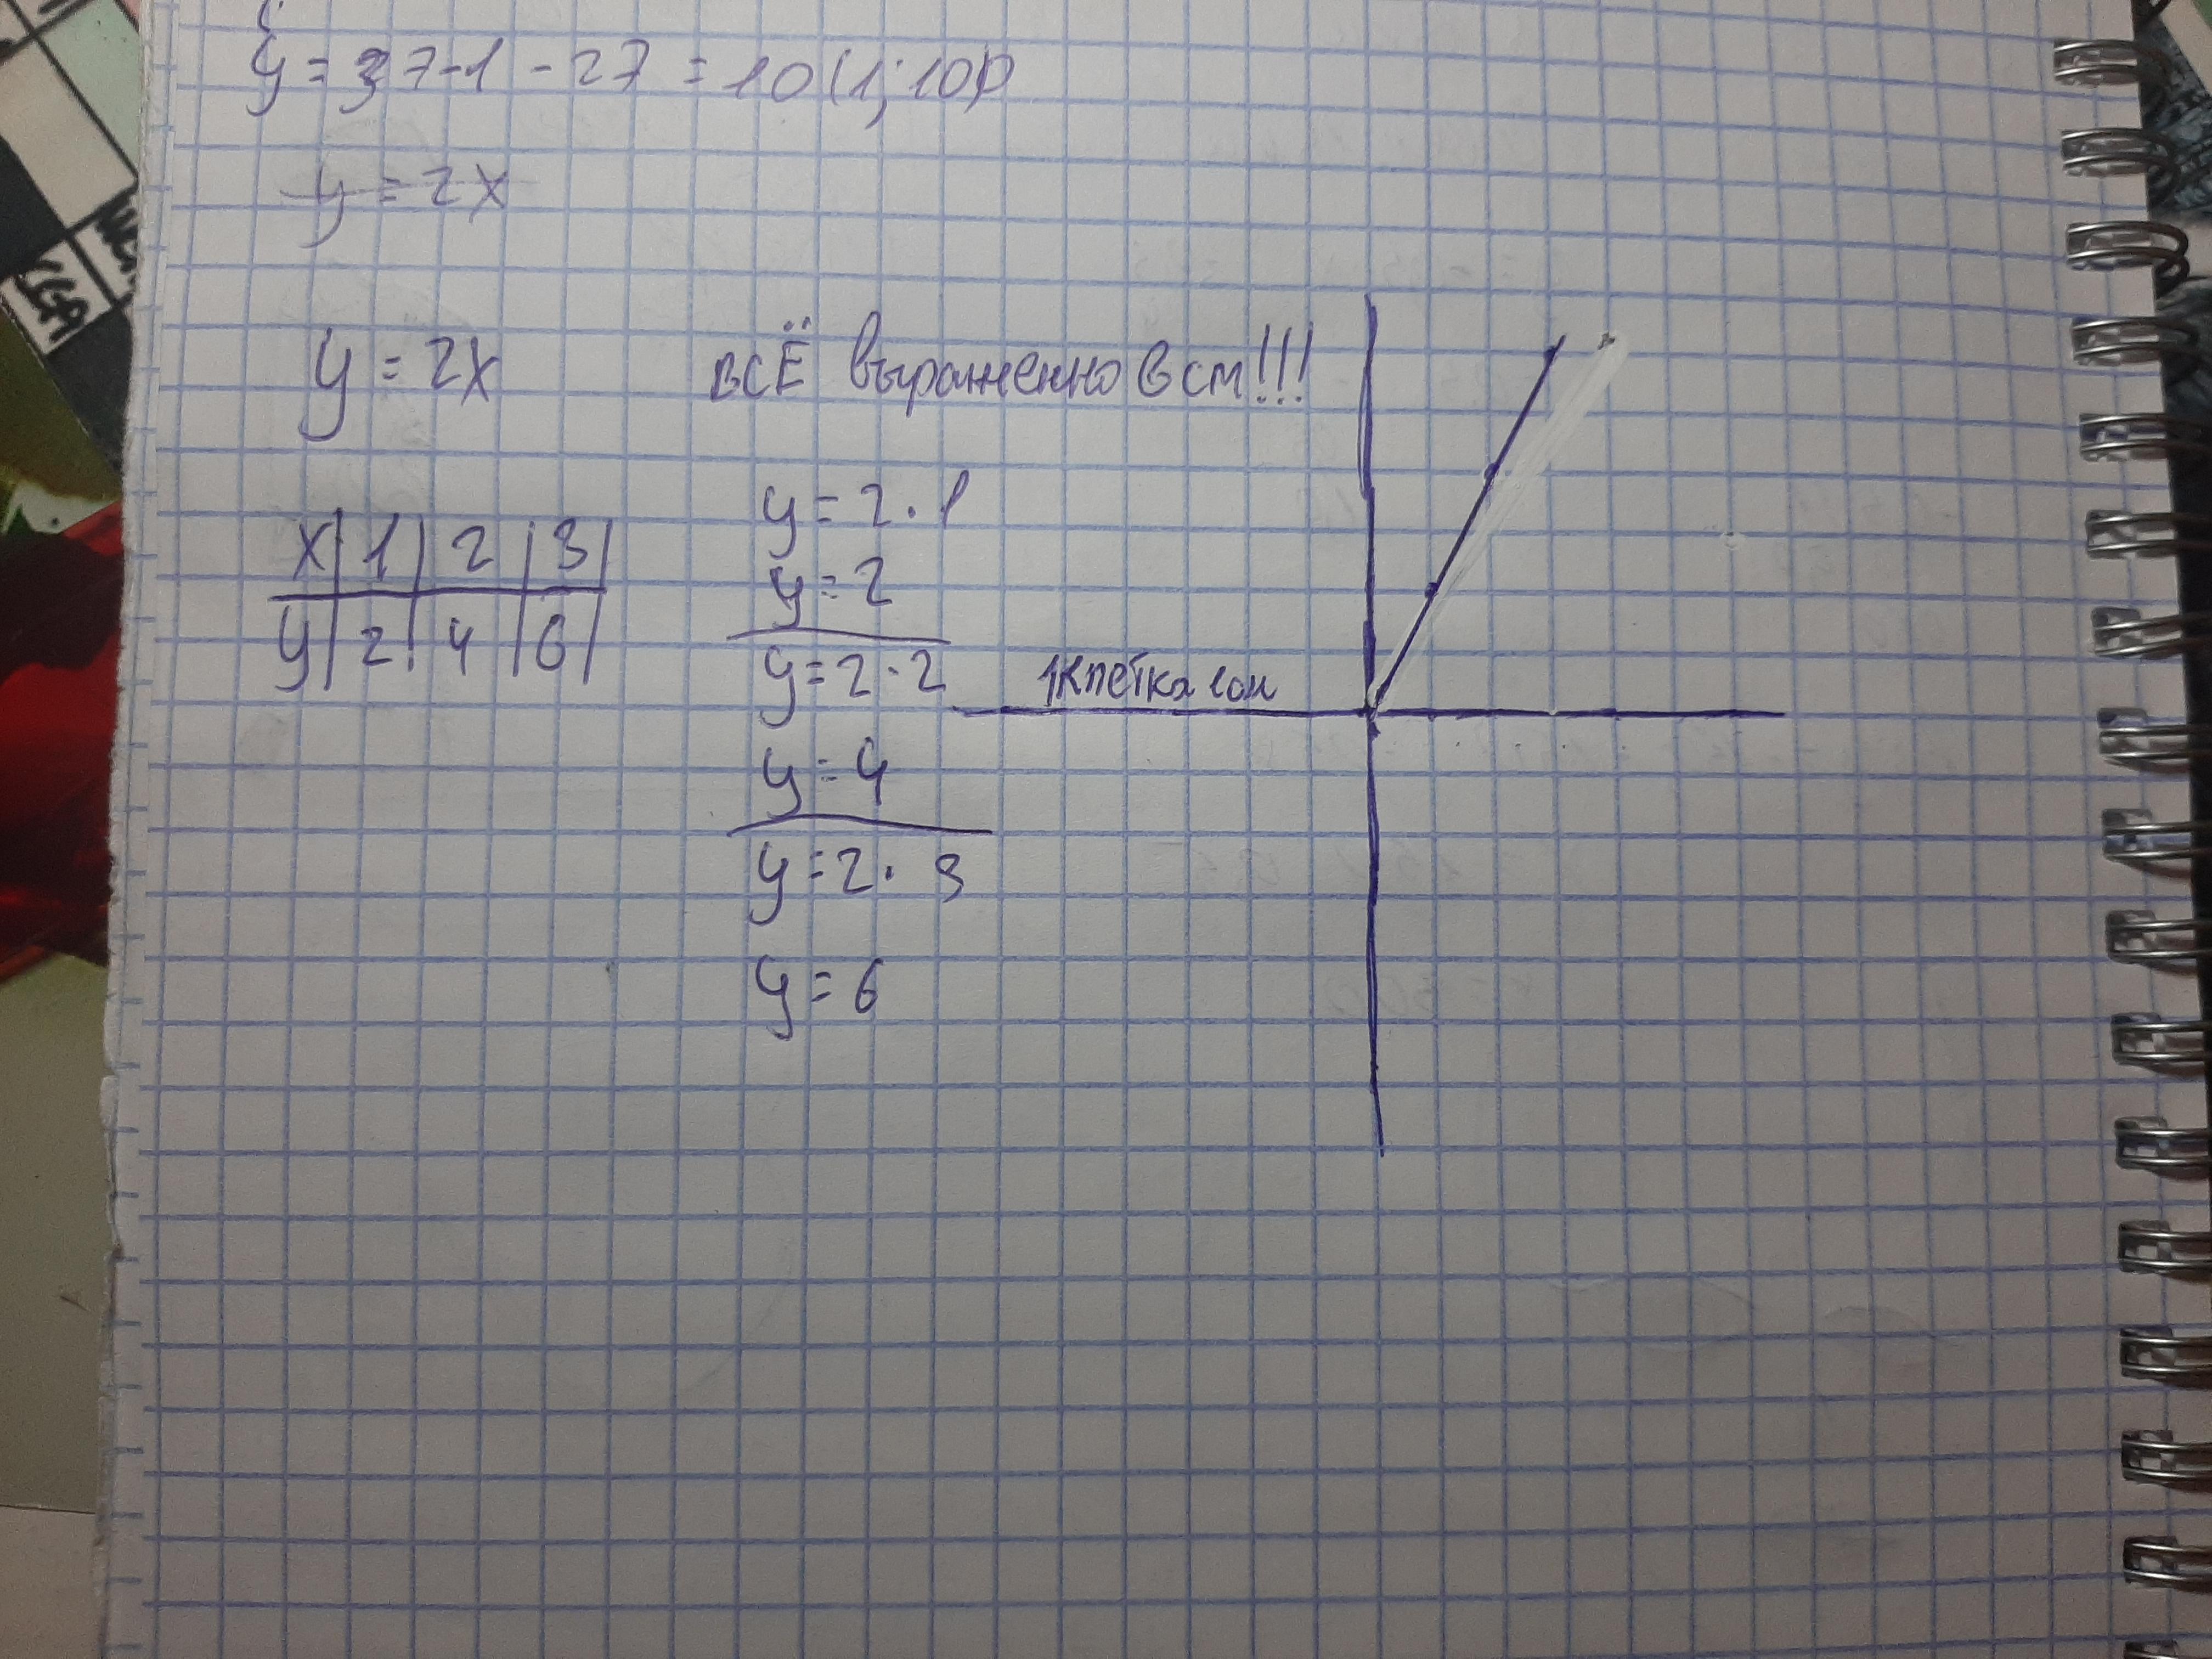 y = 37-1 - 27 = 10 (1; 10)
y = 2x
y = 2x
ВСЁ выраженно в см!!!
x | 1 | 2 | 3
y | 2 | 4 | 6
y = 2 · 1
y = 2
y = 2 · 2
y = 4
y = 2 · 3
y = 6
1клетка 1см